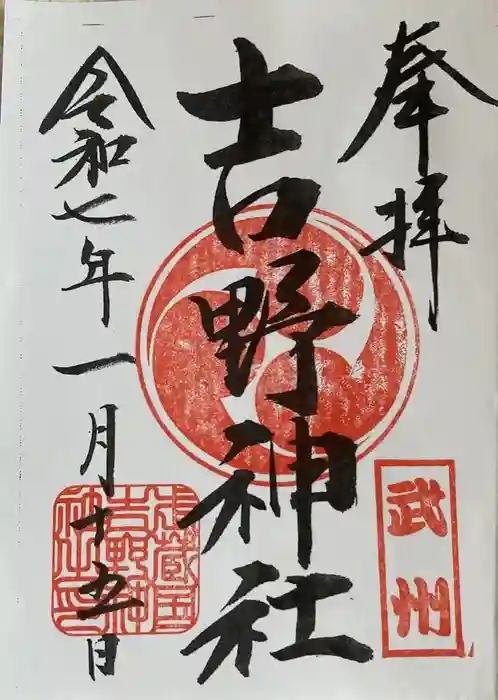 奉拝
武州
吉野神社
武蔵国
吉野神
社之印
令和七年一月十五日